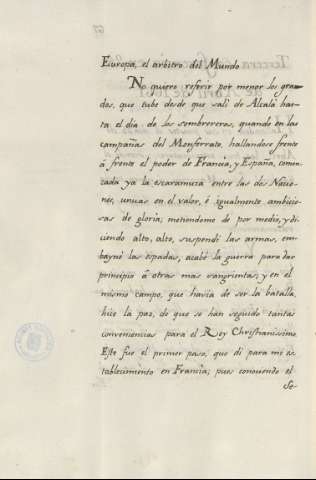 Europa, el arbitro del Mundo
No quiero referir por menor los gra-
dos, que tube desde que salí de Alcalá has-
ta el dia de los sombreros, quando en las
campañas del Monferrato, hallandose frente
á frente el poder de Francia, y España, comen-
zada ya la escaramuza entre las dos Nacio-
nes, unuas en el valor, é igualmente ambicio-
sas de gloria; metiendome de por medio, y di-
ciendo alto, alto, suspendi las armas, em-
bayné las espadas, acabé la guerra para dar
principio á otras mas sangrientas, y en el
mismo campo, que havia de ser la batalla,
hice la paz, de que se han seguido tantas
conveniencias para el Rey Christianissimo.
Este fue el primer paso, que dí para mi es-
tablecimiento en Francia; pues conociendo el
Se-